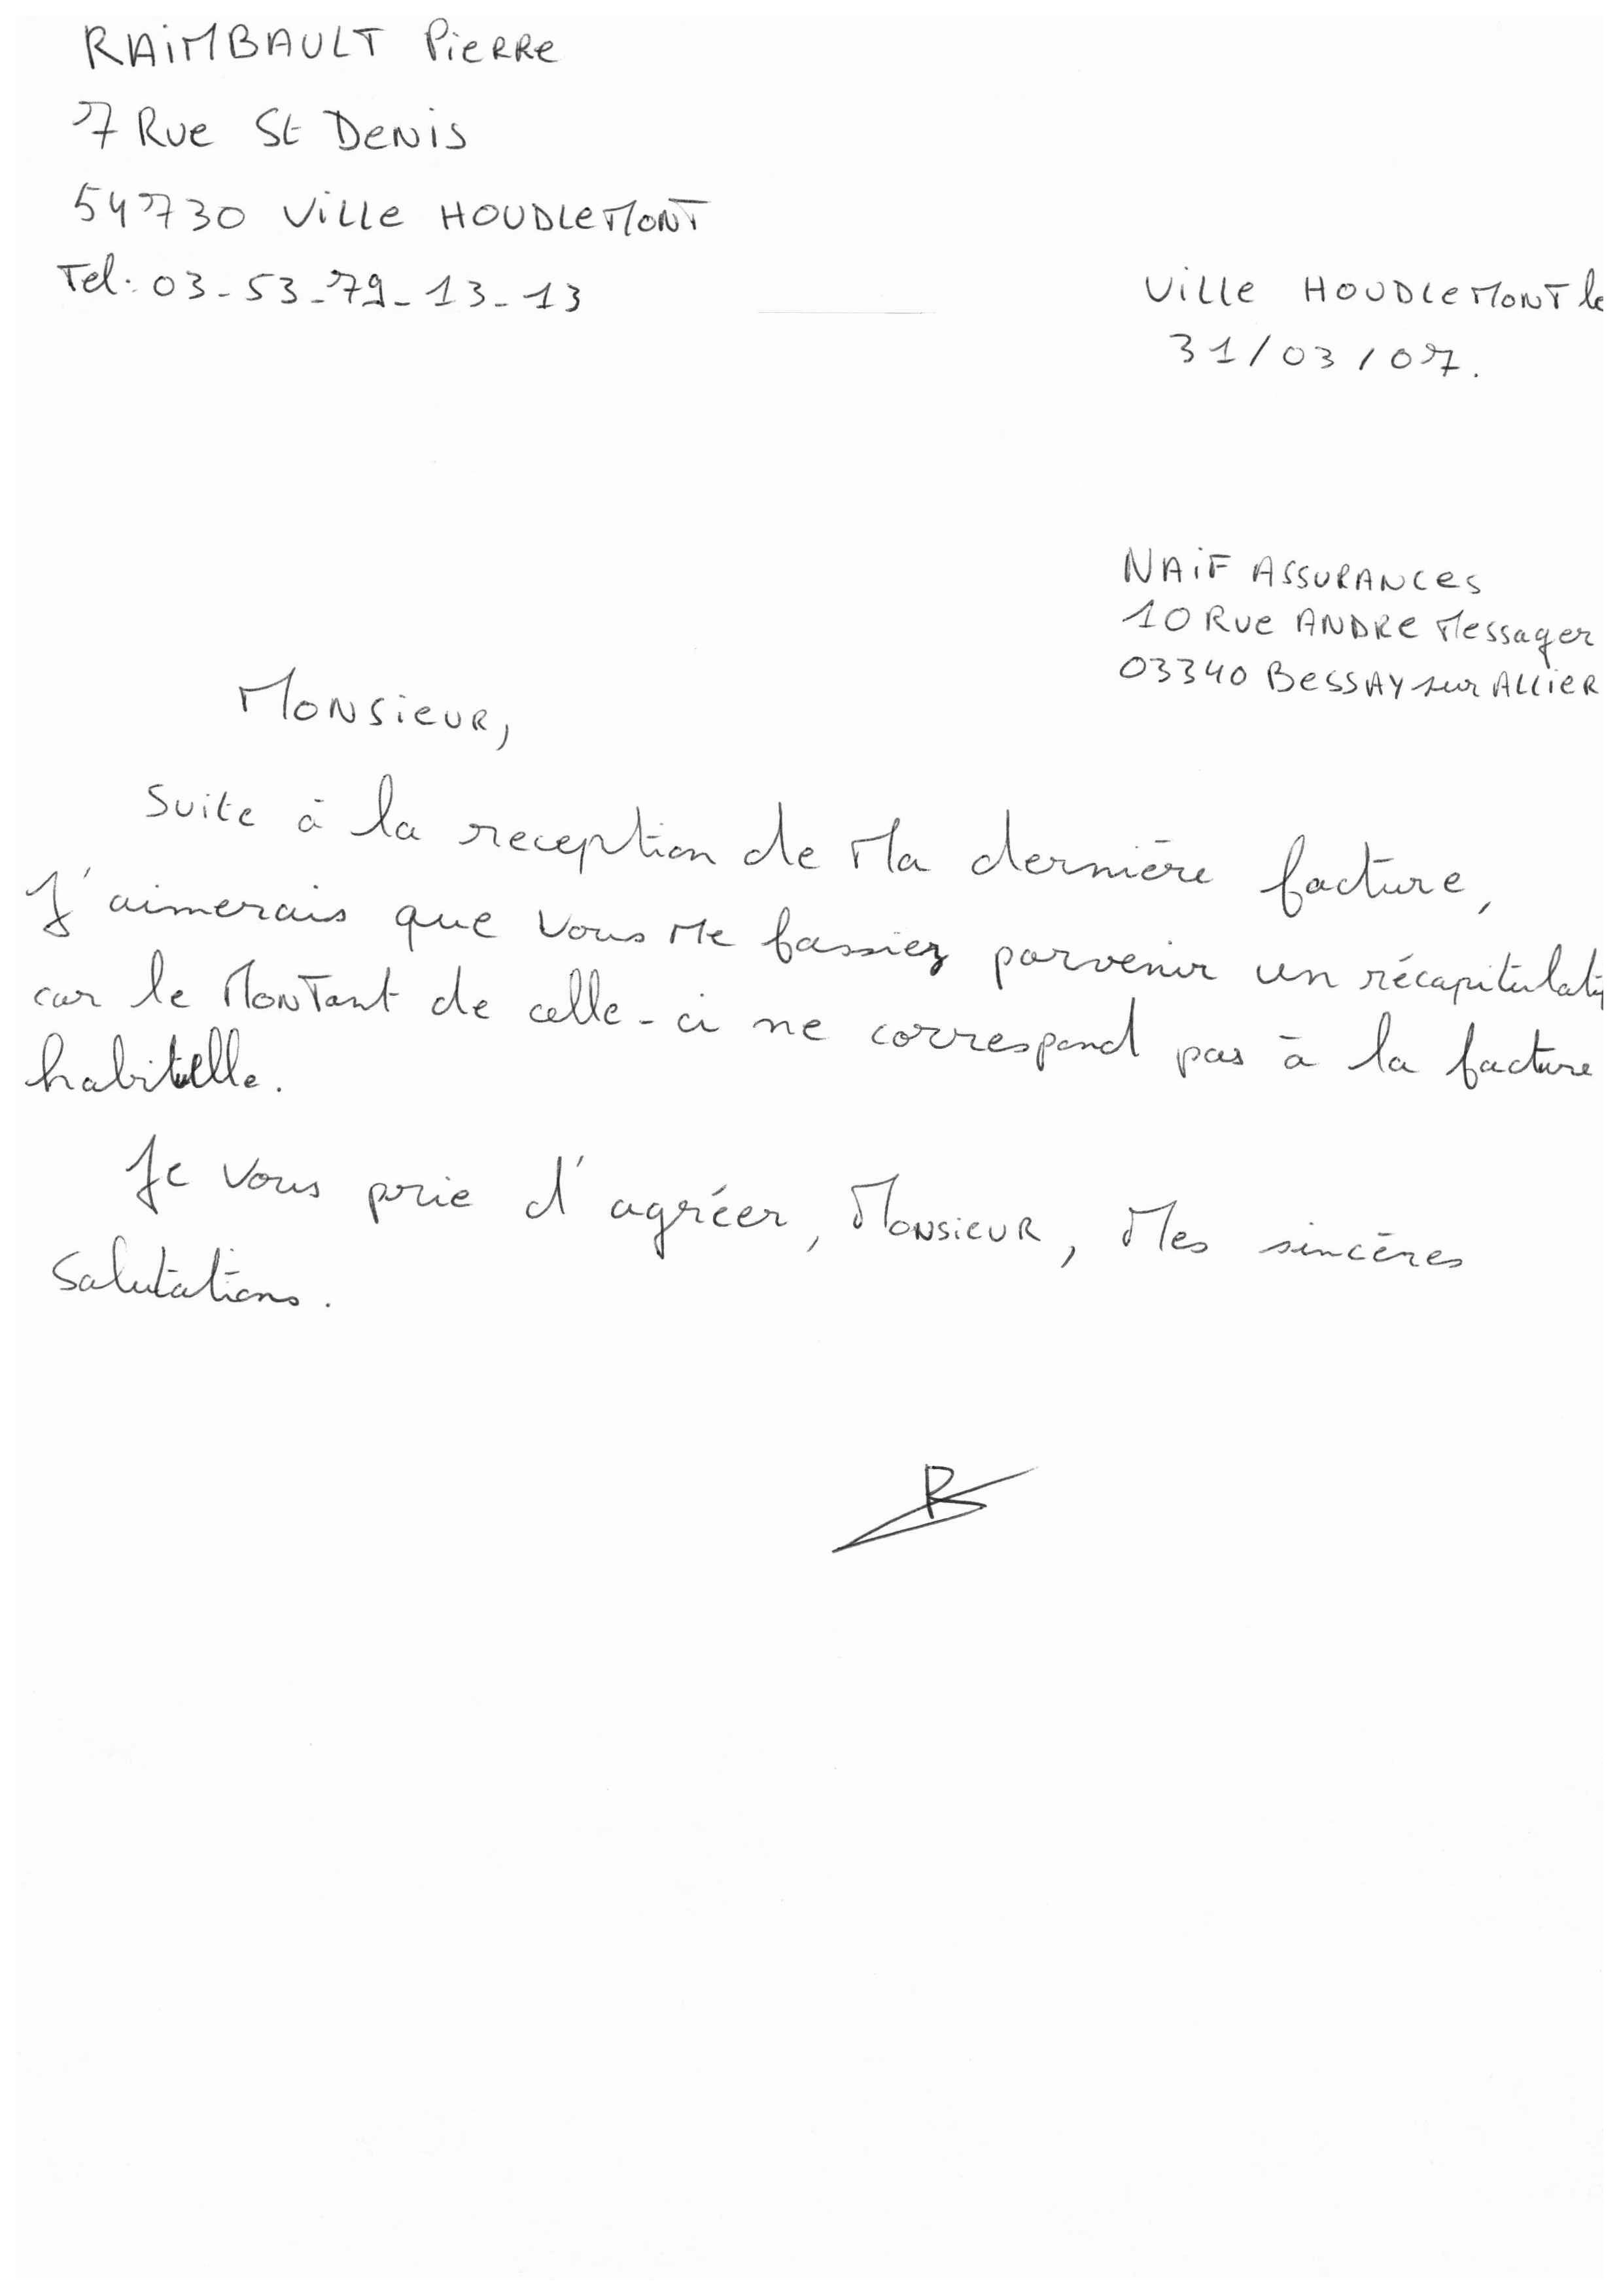 RAIMBAULT Pierre
7 Rue St Denis
54730 Ville HOUDLEMONT
Tel: 03-53-79-13-13
Ville HOUDLEMONT le
31/03/07.
NAIF ASSURANCES
10 Rue ANDRE Messager
03340 BESSAY sur ALLIER
Monsieur,
Suite à la reception de Ma dernière facture,
J'aimerais que vous Me fassiez parvenir un récapitulatif
car le Montant de celle-ci ne correspond pas à la facture
habituelle.
Je vous prie d'agréer, Monsieur, Mes sincères
Salutations.
R